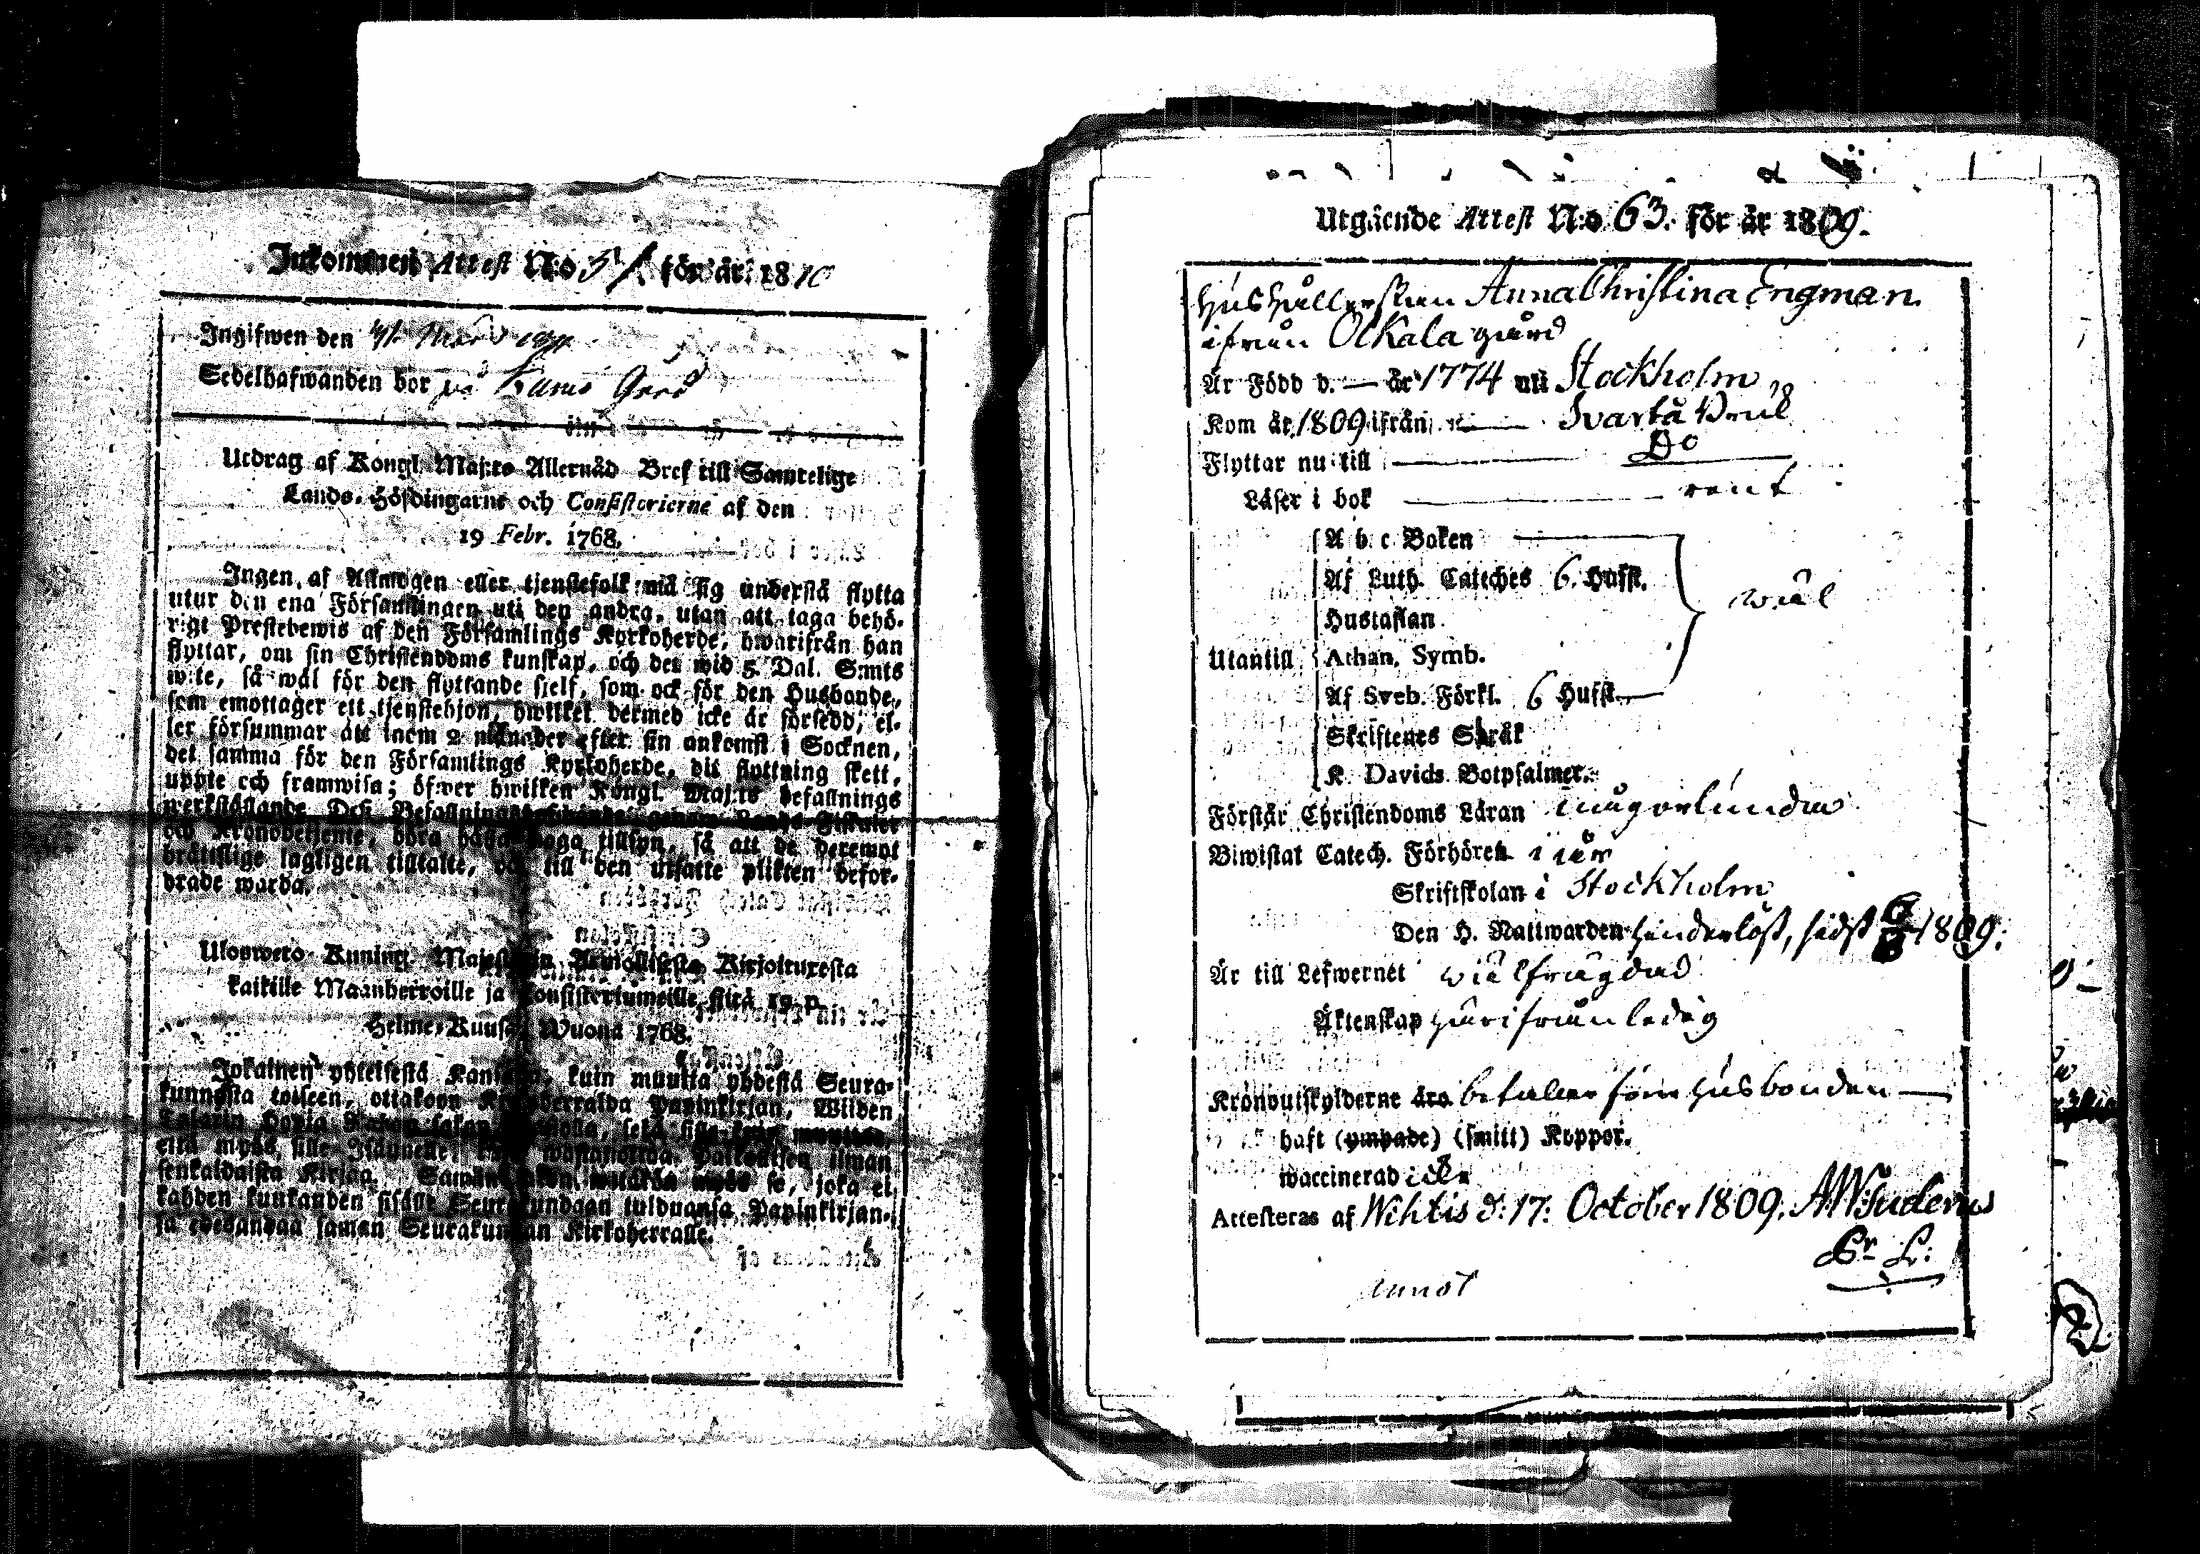 Inkommen Attest N:o för år 1810
Ingifwen den
Sedelhafwanden bor på Gård
Utdrag af Kongl. Maj:ts Allernåd Bref till Samtelige
Lands-Höfdingarne och Consistorierne af den
19 Febr. 1768.
Ingen af Allmogen eller tjenstefolk må sig understå flytta
utur den ena Församlingen uti den andra, utan att taga behö-
rigt Prestebewis af den Församlings Kyrkoherde, hwarifrån han
flyttar, om sin Christendoms kunskap, och det wid 5 Dal. S:mts
wite, så wäl för den flyttande sjelf, som ock för den Husbonde,
som emottager ett tjenstehjon, hwilket dermed icke är försedd, el-
ler försummar att inom 2 månader efter sin ankomst i Socknen,
det samma för den Församlings Kyrkoherde, dit flyttning skett,
uppte och framwisa; öfwer hwilken Kongl. Maj:ts befallnings
werkställande Dess Befallningshafwande genom Lands Fiskaler
och Kronobetjente, böra hafwa noga tillsyn, så att de deremot
bråttslige lagligen tilltalte, och till den utsatte plikten befor-
drade warda.
Ulosweto Kuning. Majestetin Armollisesta Kirjoituxesta
kaikille Maanherroille ja Consistoriumeille siitä 19 p.
Helme-Kuusa Wuona 1768.
Jokainen yhteisestä Kansasta, kuin muutta yhdestä Seura-
kunnasta toiseen, ottakoon Kirkoherralda Papinkirjan, Wiiden
Talarin Hopia Rahan sakon, sekä sille kuin muuttaa,
että myös sille Isännelle, kuin wastanottaa Palkollisen ilman
senkaldaista Kirjaa. Saman sakon wetäkön myös se, joka ei
kahden kuukauden sisälle Seurakundaan tulduansa, Papinkirjan-
sa edesandaa saman Seurakunnan Kirkoherralle.
Utgående Attest N:o 63. för år 1809.
Hushållerskan Anna Christina Engman
ifrån Olkala gård
Är Född d. — år 1774 uti Stockholm
Kom år 1809 ifrån Svartå Bruk
Flyttar nu till Do
Läser i bok rent
A b c Boken
Af Luth. Cateches 6. Hufst. wäl
Hustaflan
Utantill Athan. Symb.
Af Sveb. Förkl. 6 Hufst.
Skriftenes Språk
K. Davids Botpsalmer.
Förstår Christendoms Läran någorlunda
Biwistat Catech. Förhören i år
Skriftskolan i Stockholm
Den H. Nattwarden hinderlöst, sidst 1809.
Är till Lefwernet wälfrägdad
Äktenskap härifrån ledig
Kronoutskylderne äro betaller som husbonden
haft (ympade) (smitt) Koppor.
waccinerad icke
Attesteras af Wihtis d: 17: October 1809. AW:Sudenius